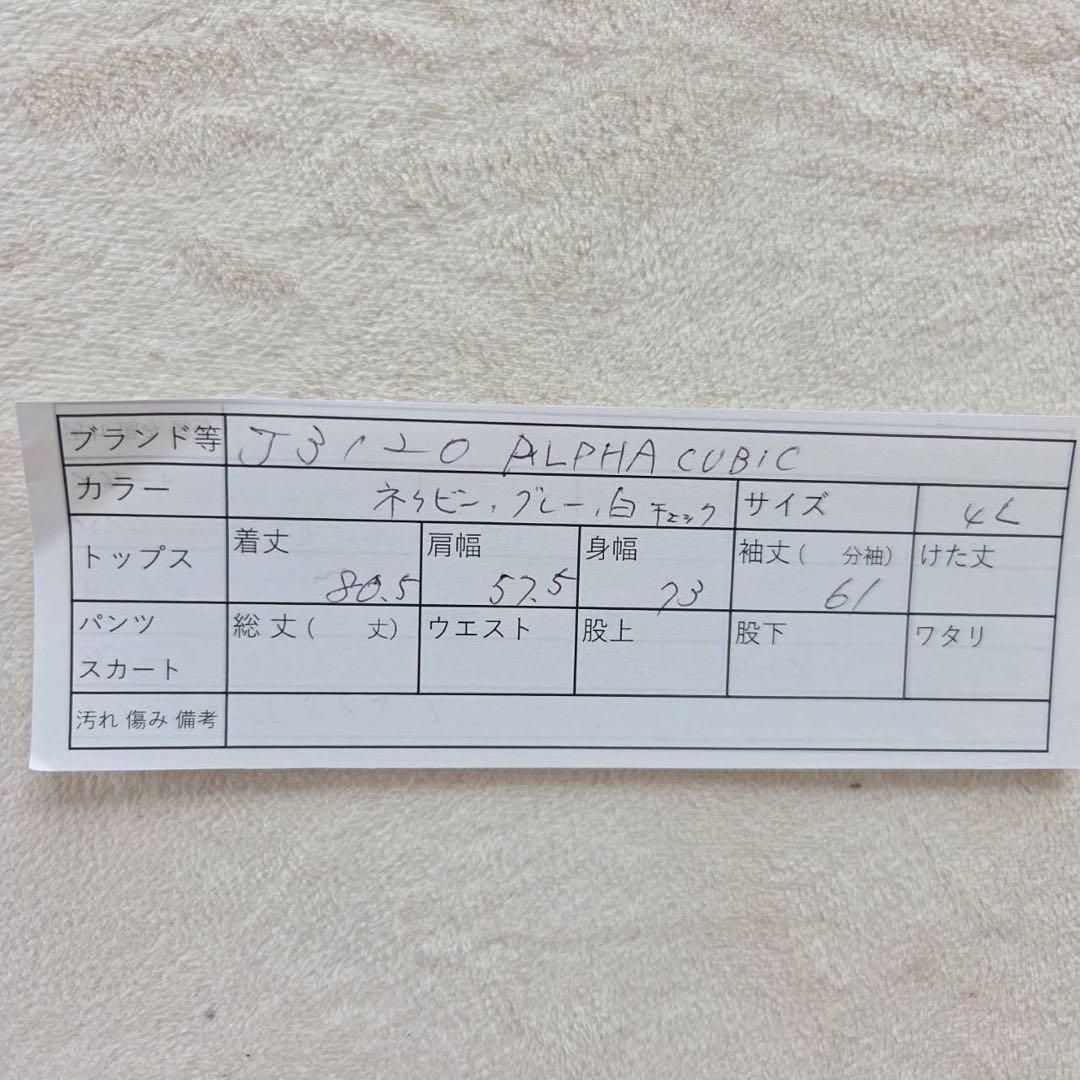 ブランド等 J3120 ALPHA CUBIC
カラー ネイビー、グレー、白チェック サイズ 4L
トップス 着丈 80.5 肩幅 57.5 身幅 73 袖丈( 分袖) 61 けた丈
パンツ スカート 総丈( 丈) ウエスト 股上 股下 ワタリ
汚れ 傷み 備考